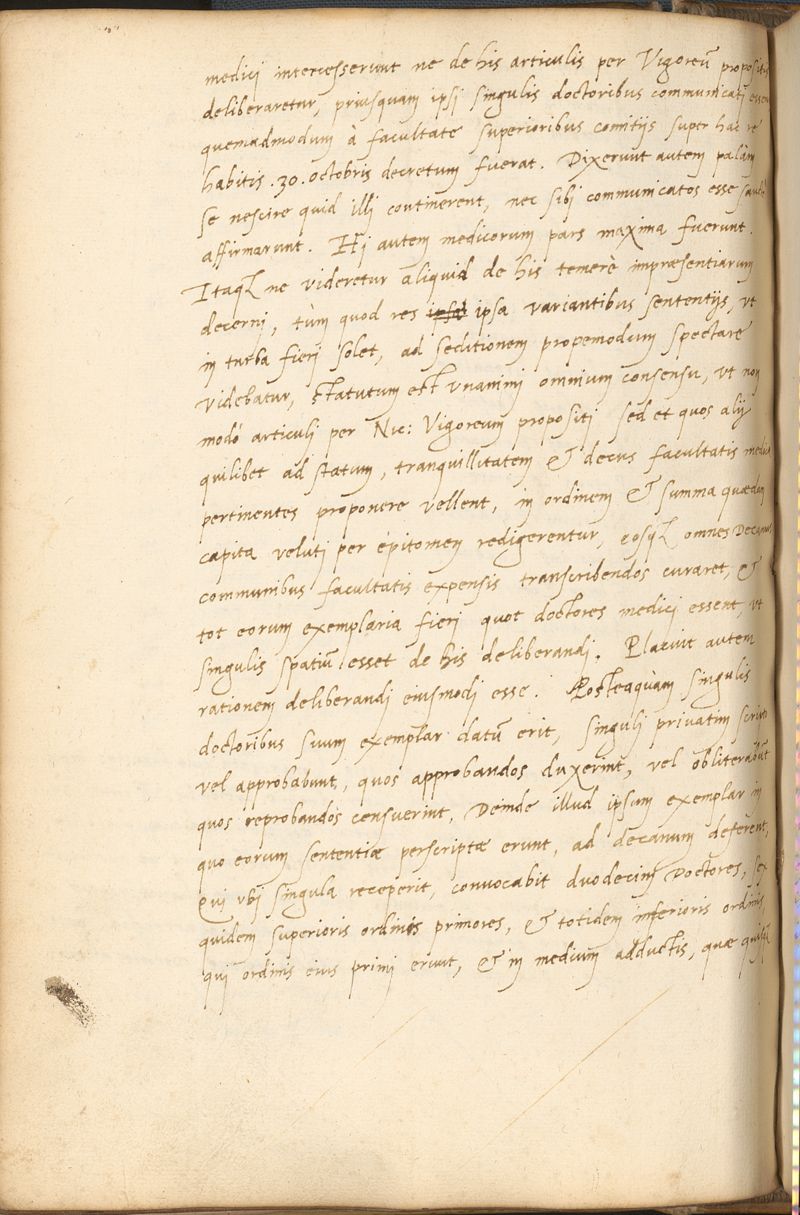 medici intercesserunt ne de his articulis per Vigoreū propositis
deliberaretur, priusquam ipsi singulis doctoribus communicati essent
quemadmodum à facultate superioribus comitijs super hac re
habitis .30. octobris decretum fuerat. Dixerunt autem palàm
se nescire quid illi continerent, nec sibi communicatos esse sanctè
affirmarunt. Hi autem medicorum pars maxima fuerunt.
Itaq ne videretur aliquid de his temerè impræsentiarum
decerni, tùm quod res ipsa variantibus sententijs, vt
in turba fieri solet, ad seditionem propemodum spectare
videbatur, statutum est vnanimi omnium consensu, vt non
modò articuli per Nic: Vigoreum propositi sed et quos alij
quilibet ad statum, tranquillitatem & decus facultatis medicæ
pertinentes proponere vellent, in ordinem & summa quædam
capita veluti per epitomen redigerentur, eosq omnes Decanus
communibus facultatis expensis transcribendos curaret, &
tot eorum exemplaria fieri quot doctores medici essent, vt
singulis spatiū esset de his deliberandi. Placuit autem
rationem deliberandi eiusmodi esse. Posteaquàm singulis
doctoribus suum exemplar datū erit, singuli privatim scripto
vel approbabunt, quos approbandos duxerint, vel obliterabūt
quos reprobandos censuerint, Deinde illud ipsum exemplar in
quo eorum sententiæ perscriptæ erunt, ad decanum deferent,
Qui vbi singula receperit, convocabit duodecim Doctores, sex
quidem superioris ordinis primores, & totidem inferioris ordinis,
qui ordinis eius primi erunt, & in medium adductis, quæ